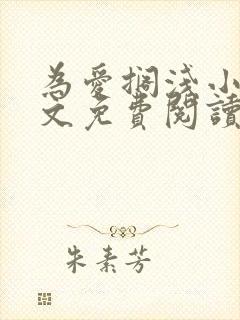 為愛擱淺小
文免費閱讀
朱素芳